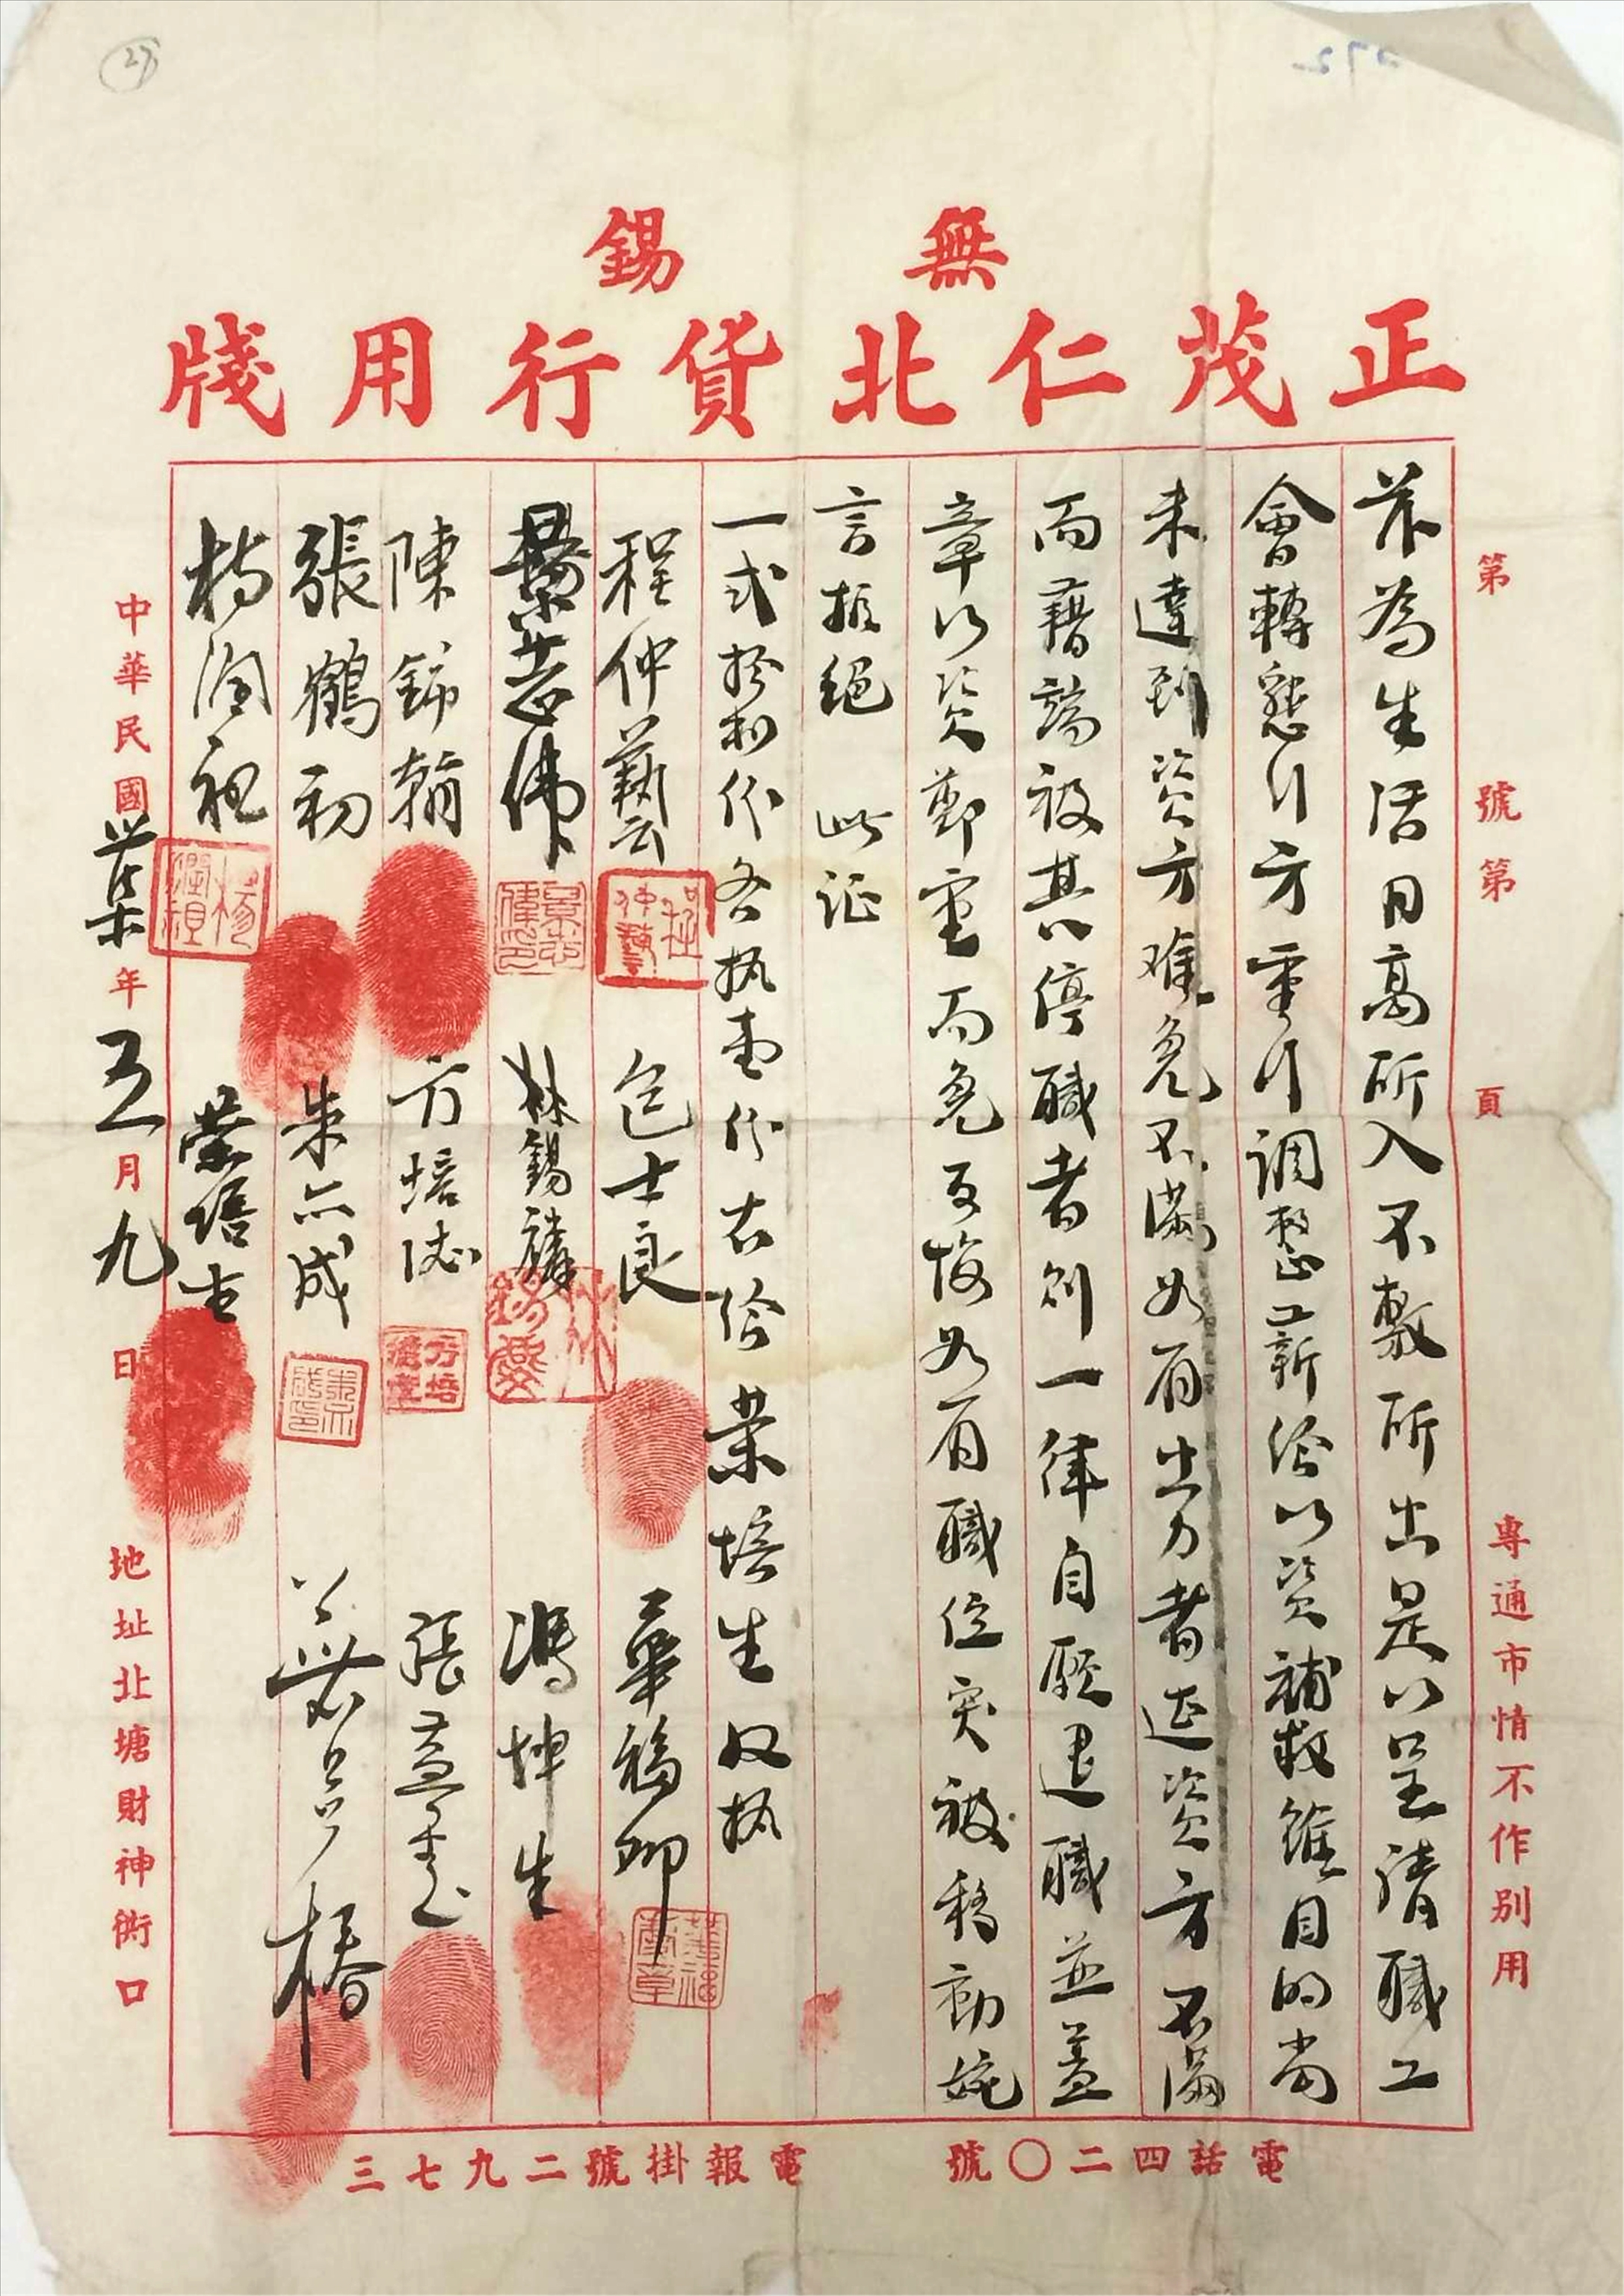 無錫
正茂仁北貨行用牋
第 號第 頁
專通市情不作別用
茲為生活日高所入不敷所出是以呈請職工
會轉懇行方重行調整薪給以資補救雖目的尚
未達到資方难免不满如有出力者延資方不滿
而藉端被其停職者則一律自願退職並蓋
章以资鄭重而免反悔如有職位突被移動
言拒絕 此証
一式拾 份各执壹份右给 荣培生收执
程仲藝 包士良 華福卿
景志偉 林錫麟 馮坤生
陳錦翰 方培 張
張鶴初 朱六成
楊潤祖 榮培生
中華民國卅柒年五月九日
地址北塘財神衖口
電話四二〇號
電報掛號二九七三
27